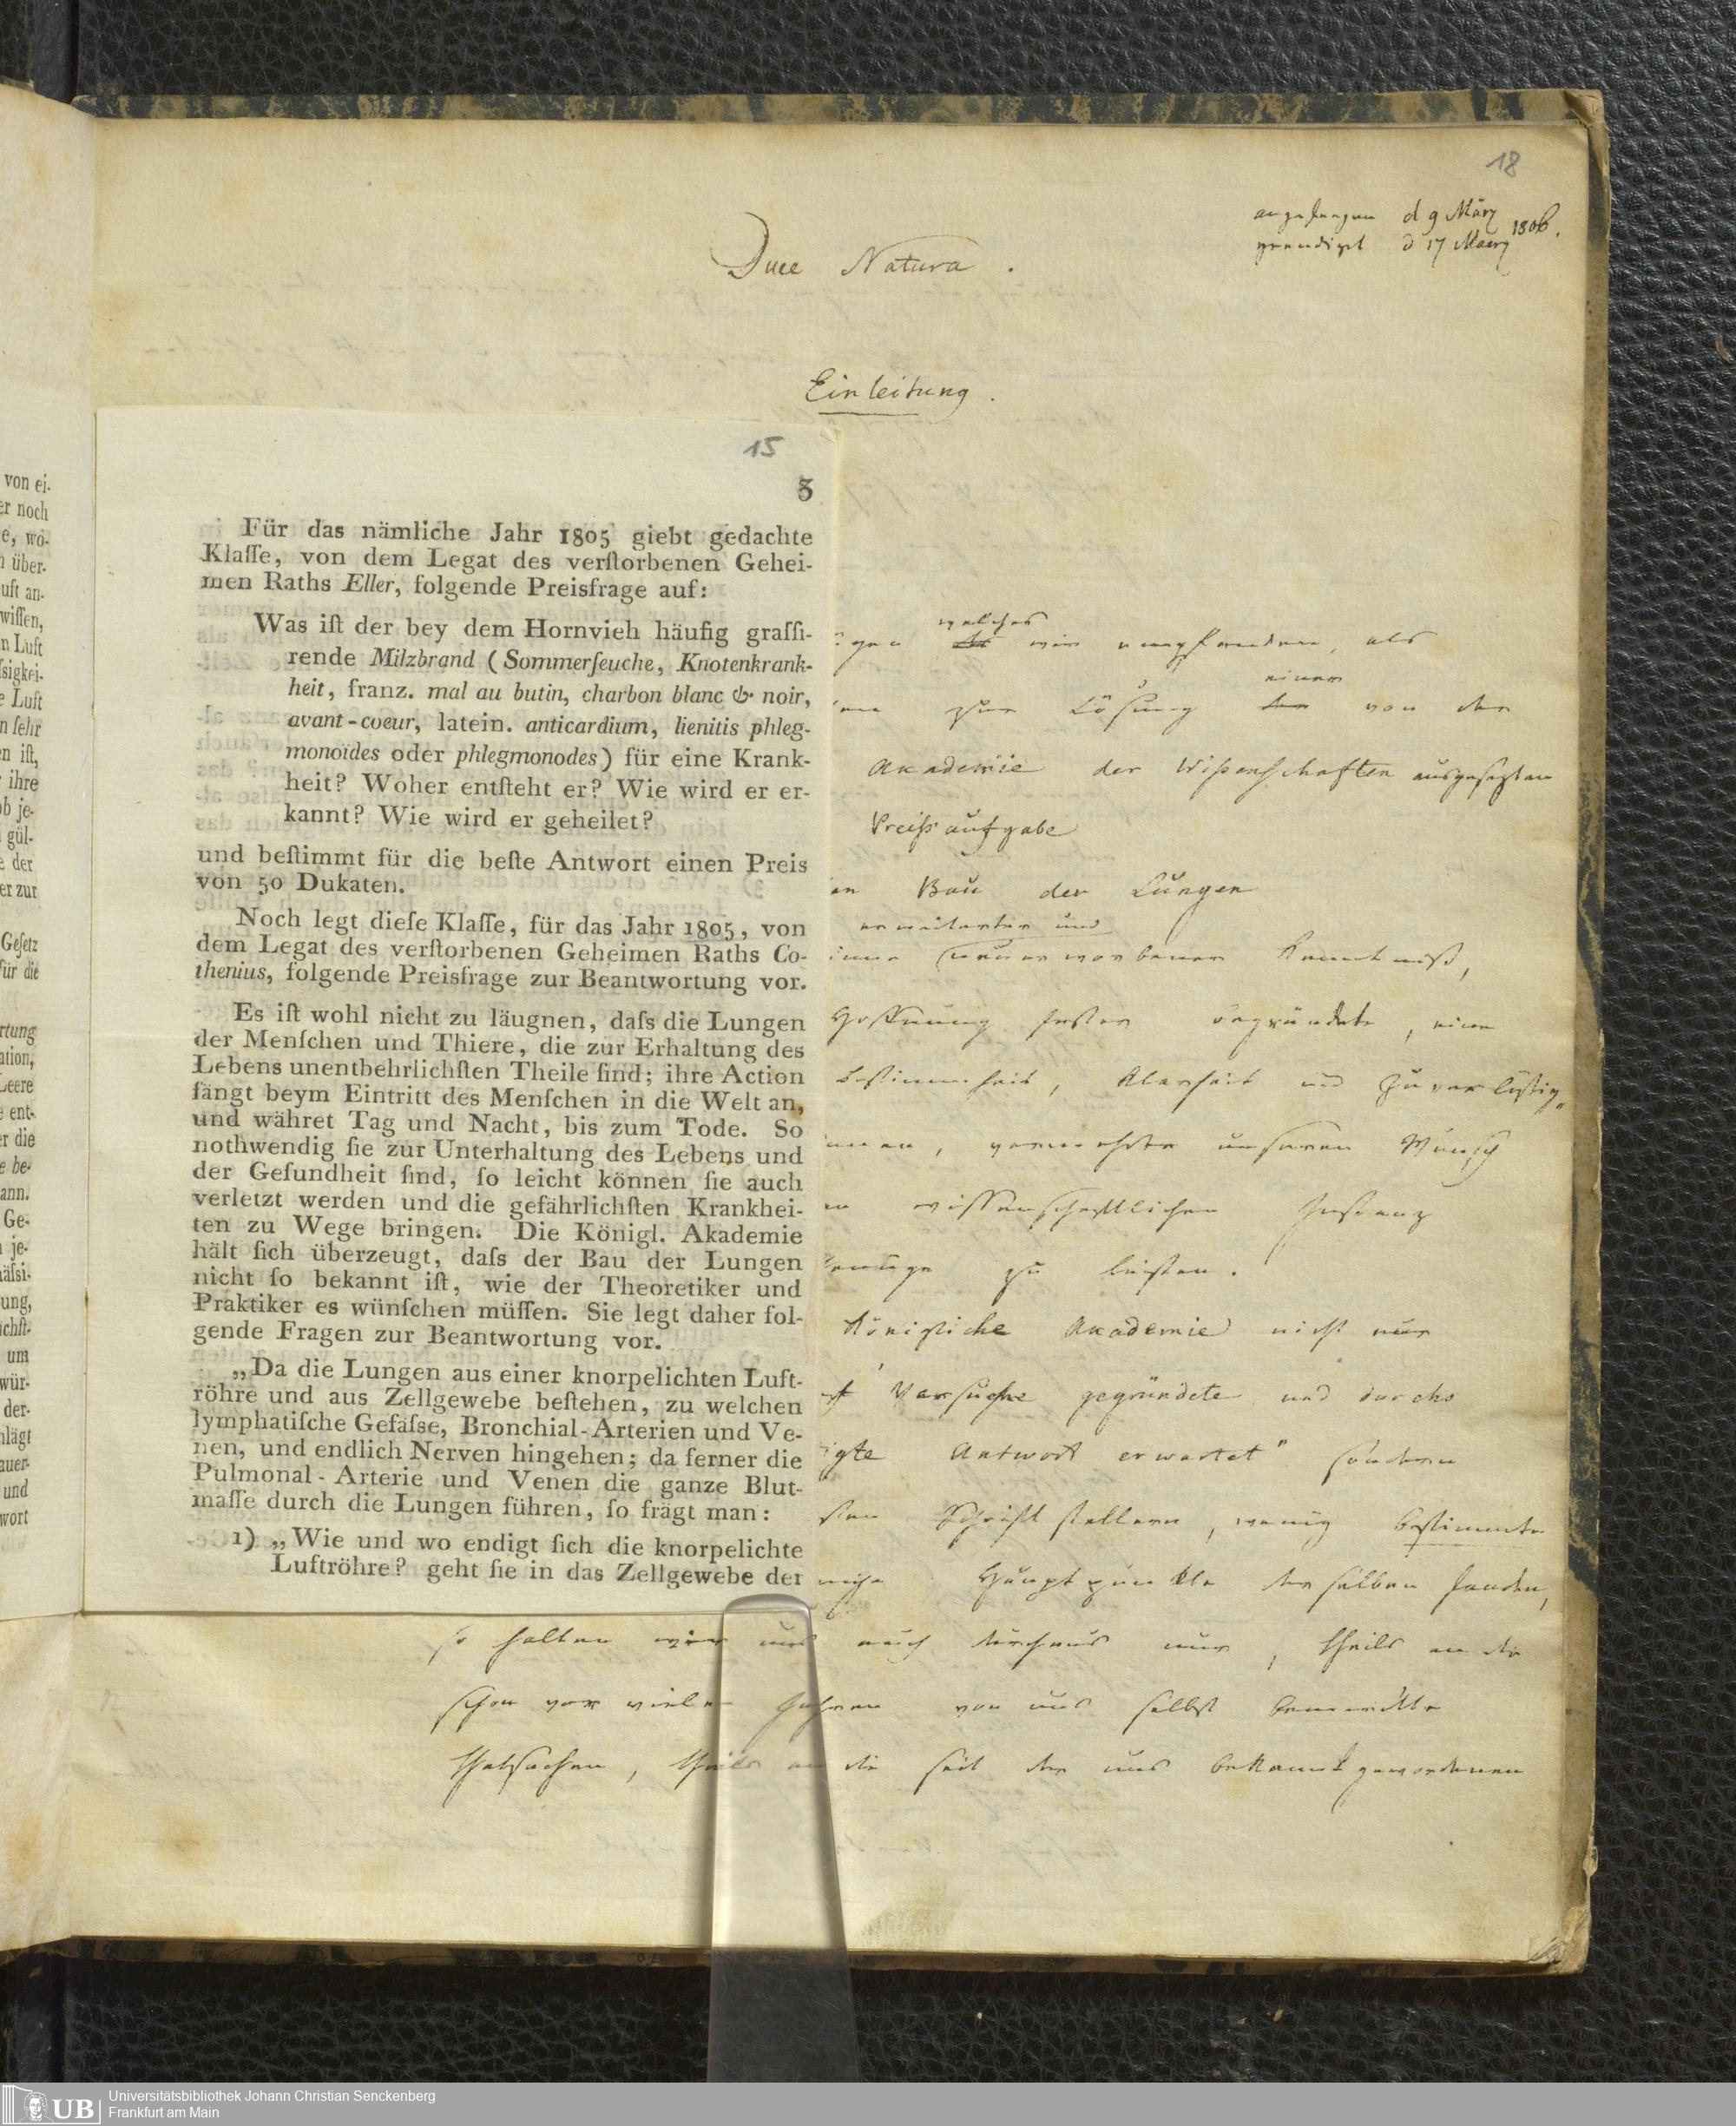 18
angefangen d 9 März
geendigt d 17 Maerz 1806.
Duce Natura.
Einleitung.
15
3
Für das nämliche Jahr 1805 giebt gedachte
Klaſſe, von dem Legat des verſtorbenen Gehei-
men Raths Eller, folgende Preisfrage auf:
Was iſt der bey dem Hornvieh häufig graſſi-
rende Milzbrand (Sommerſeuche, Knotenkrank-
heit, franz. mal au butin, charbon blanc & noir,
avant-coeur, latein. anticardium, lienitis phleg-
monoïdes oder phlegmonodes) für eine Krank-
heit? Woher entſteht er? Wie wird er er-
kannt? Wie wird er geheilet?
und beſtimmt für die beſte Antwort einen Preis
von 50 Dukaten.
Noch legt dieſe Klaſſe, für das Jahr 1805, von
dem Legat des verſtorbenen Geheimen Raths Co-
thenius, folgende Preisfrage zur Beantwortung vor.
Es iſt wohl nicht zu läugnen, daſs die Lungen
der Menſchen und Thiere, die zur Erhaltung des
Lebens unentbehrlichſten Theile ſind; ihre Action
fängt beym Eintritt des Menſchen in die Welt an,
und währet Tag und Nacht, bis zum Tode. So
nothwendig ſie zur Unterhaltung des Lebens und
der Geſundheit ſind, ſo leicht können ſie auch
verletzt werden und die gefährlichſten Krankhei-
ten zu Wege bringen. Die Königl. Akademie
hält ſich überzeugt, daſs der Bau der Lungen
nicht ſo bekannt iſt, wie der Theoretiker und
Praktiker es wünſchen müſſen. Sie legt daher fol-
gende Fragen zur Beantwortung vor.
„Da die Lungen aus einer knorpelichten Luft-
röhre und aus Zellgewebe beſtehen, zu welchen
lymphatiſche Gefäſse, Bronchial-Arterien und Ve-
nen, und endlich Nerven hingehen; da ferner die
Pulmonal-Arterie und Venen die ganze Blut-
maſſe durch die Lungen führen, ſo frägt man:
1) „Wie und wo endigt ſich die knorpelichte
Luftröhre? geht ſie in das Zellgewebe der
welches
wir empfanden, als
einer
zur Lösung der von der
Akademie der Wißenschaften ausgesezten
Preißaufgabe
Bau der Lungen
erweiterter und
neuerworbener Kenntniß,
Hoffnung fester begründete, eine
Bestimmtheit, Klarheit und Zuverläßig„
vermehrte unseren Wunsch
wissenschaftlichen Instanz
zu leisten.
Königliche Akademie nicht nur
Versuche gegründete und durchs
Antwort erwartet" sondern
Schriftstellern, wenig bestimmte
Hauptpunkte derselben fanden,
so halten wir uns auch durchaus nur, theils an die
schon vor vielen Jahren von uns selbst bemerkte
Thatsachen, theils an die seit der uns bekannt gewordenen
von ei-
er noch
e, wo-
n über-
uft an-
wiſſen,
n Luft
ſsigkei-
e Luft
n ſehr
en iſt,
ihre
ob je-
gül-
e der
er zur
Geſetz
für die
rtung
ation,
Leere
e ent-
er die
e be-
ann.
Ge-
je-
äſsi-
ung,
ichſt-
um
wür-
der-
hlägt
auer-
und
wort
UB Universitätsbibliothek Johann Christian Senckenberg
Frankfurt am Main